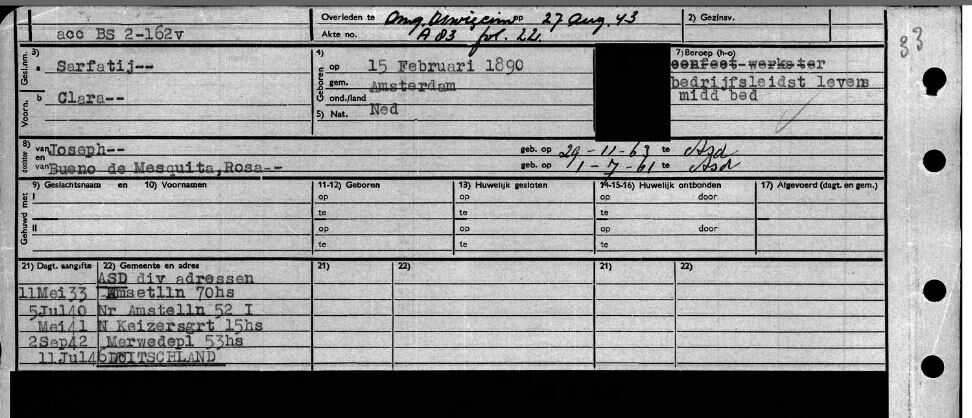 Overleden te omg. Oswiecim op 27 aug. 43
2) Gezinsv.
acc BS 2-162v
Akte no. A 83 fol. 22.
33
Gesl.nm. 3)
a Sarfatij--
Voorn. b Clara--
4)
Geboren op 15 Februari 1890
gem. Amsterdam
ond./land
5) Nat. Ned
7) Beroep (h-o)
confect werkster
bedrijfsleidst levens
midd bed
8) van Joseph-- geb. op 29-11-63 te Asd
en
van Bueno de Mesquita,Rosa-- geb. op 1-7-61 te Asd
Gehuwd met
9) Geslachtsnaam en 10) Voornamen 11-12) Geboren 13) Huwelijk gesloten 14-15-16) Huwelijk ontbonden 17) Afgevoerd (dagt. en gem.)
I op op op door
te te te
II op op op door
te te te
21) Dagt. aangifte 22) Gemeente en adres 21) 22) 21) 22)
ASD div adressen
11Mei33 Amsetlln 70hs
5Jul40 Nr Amstelln 52 I
Mei41 N Keizersgrt 15hs
2Sep42 Merwedepl 53hs
11Jul4 DUITSCHLAND